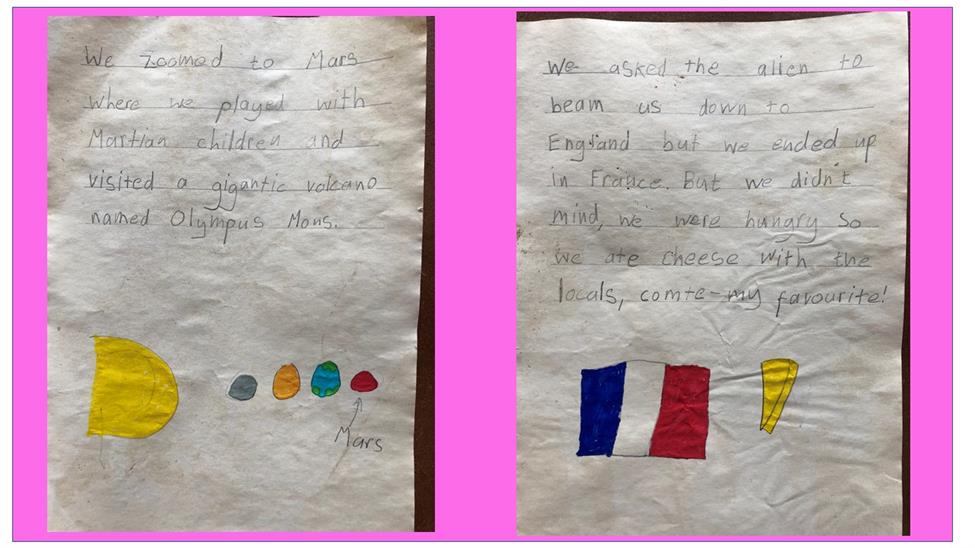 We zoomed to Mars
where we played with
Martian children and
visited a gigantic volcano
named Olympus Mons.
Mars
We asked the alien to
beam us down to
England but we ended up
in France. But we didn't
mind, we were hungry so
we ate cheese with the
locals, comte-my favourite!